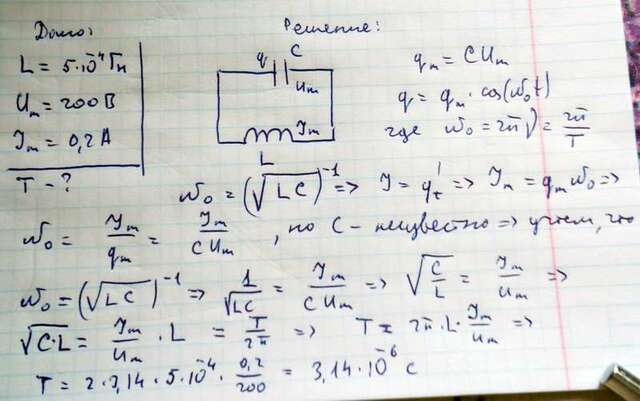 Дано:
L = 5·10⁻⁴ Гн
Um = 200 В
Jm = 0,2 A
T - ?
Решение:
q C
Um
Jm
L
qm = CUm
q = qm · cos(ω₀t)
где ω₀ = 2πν = 2π/T
ω₀ = (√LC)⁻¹ => J = q't => Jm = qm ω₀ =>
ω₀ = Jm/qm = Jm/CUm , но C - неизвестно => учтём, что
ω₀ = (√LC)⁻¹ => 1/√LC = Jm/CUm => √C/L = Jm/Um =>
√C·L = Jm/Um · L = T/2π => T = 2π·L·Jm/Um =>
T = 2·3,14·5·10⁻⁴ · 0,2/200 = 3,14·10⁻⁶ c